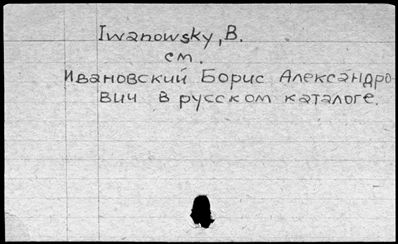 Iwanowsky, B.
см.
Ивановский Борис Александро
вич в русском каталоге.